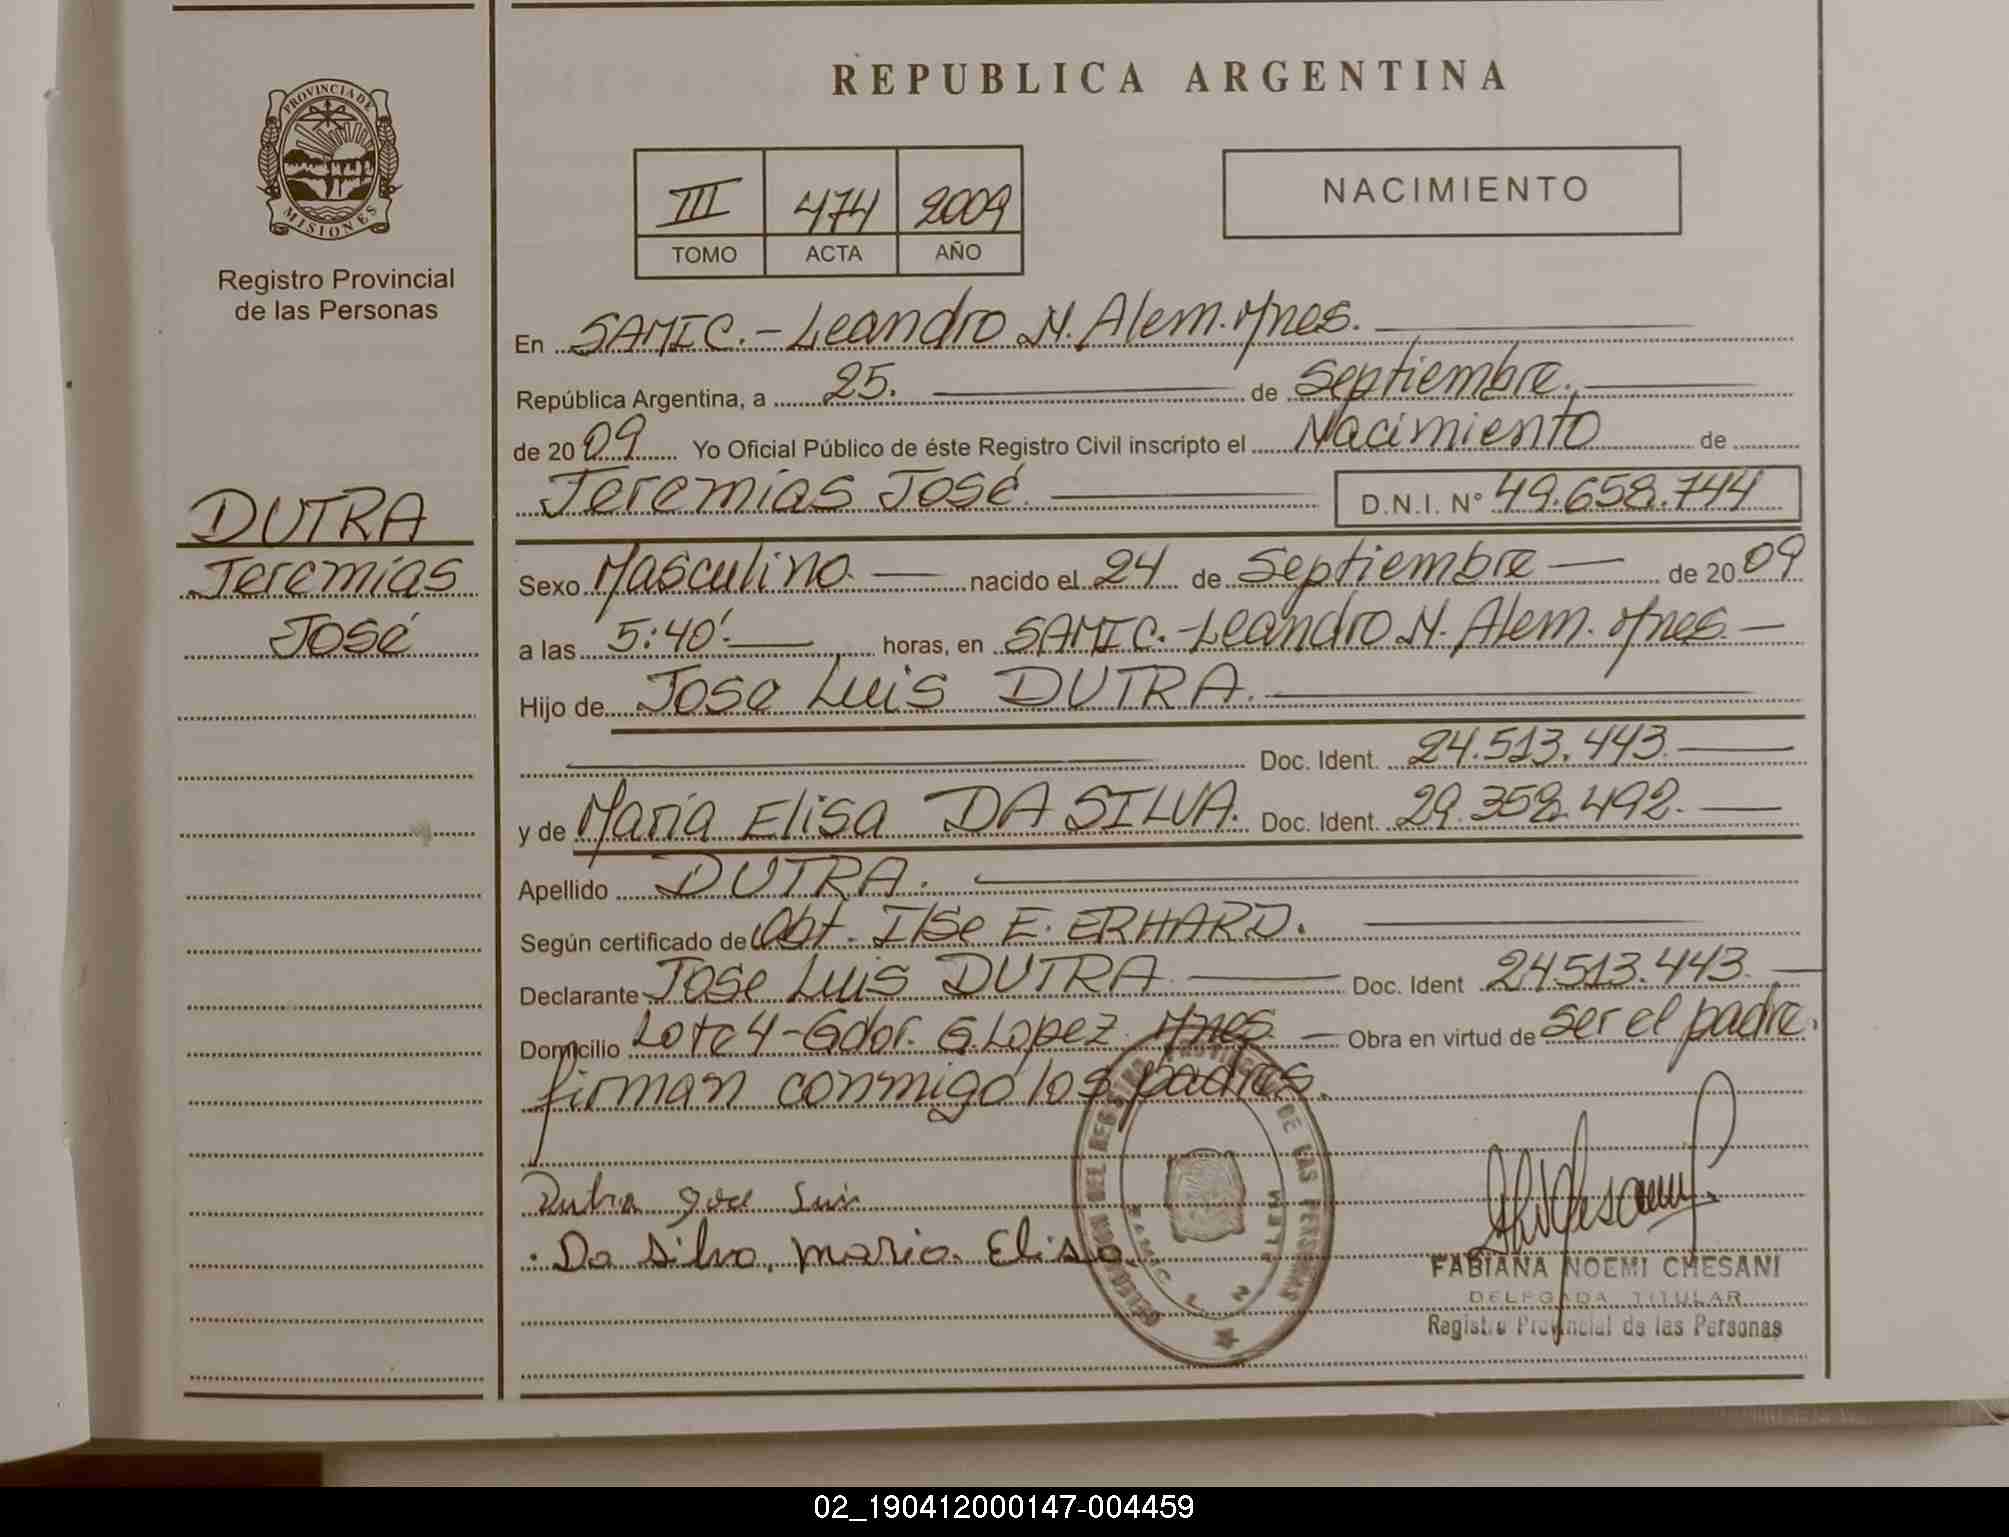 REPUBLICA ARGENTINA
PROVINCIA DE
MISIONES
Registro Provincial
de las Personas
III 474 2009
TOMO ACTA AÑO
NACIMIENTO
DUTRA
Jeremias
José
En SAMIC.-Leandro N. Alem. Mnes.
República Argentina, a 25. de Septiembre.
de 2009 Yo Oficial Público de éste Registro Civil inscripto el Nacimiento de
Jeremias José. D.N.I. N° 49.658.744
Sexo Masculino. nacido el 24 de Septiembre de 2009
a las 5:40'. horas, en SAMIC.-Leandro N. Alem. Mnes.
Hijo de Jose Luis DUTRA.
Doc. Ident. 24.513.443.
y de Maria Elisa DA SILVA. Doc. Ident. 29.358.492.
Apellido DUTRA.
Según certificado de Obt. Ilse E. ERHARD.
Declarante Jose Luis DUTRA Doc. Ident 24513.443.
Domicilio Lote 4-Gdor. G. Lopez. Mnes. Obra en virtud de ser el padre.
firman conmigo los padres.
Dutra Jose Luis
Da Silva, Maria Elisa.
DEL REGISTRO PROVINCIAL DE LAS PERSONAS
FABIANA NOEMI CHESANI
DELEGADA TITULAR
Registro Provincial de las Personas
02_190412000147-004459